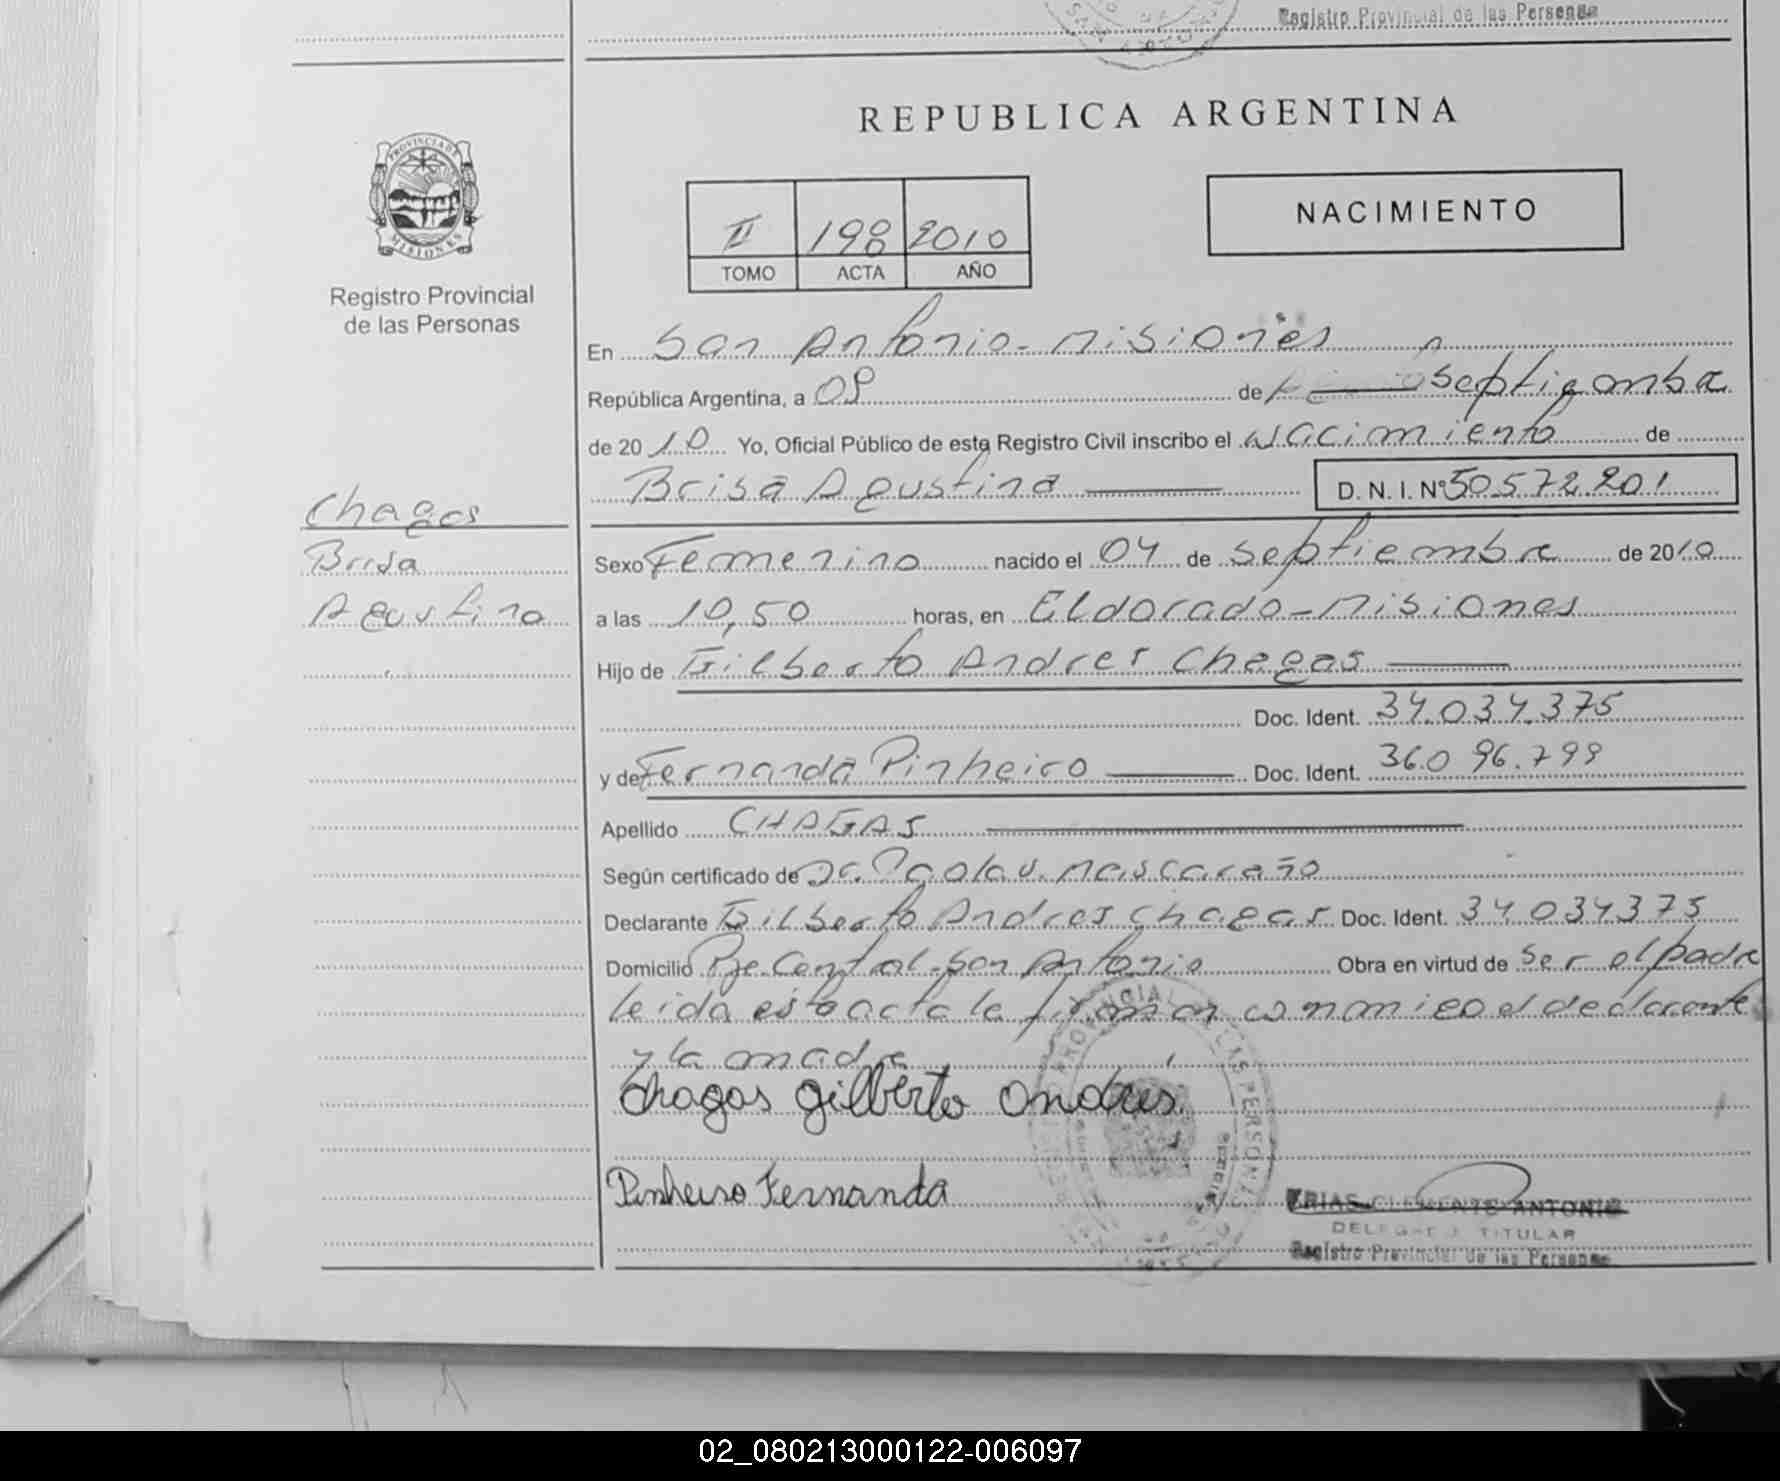 Registro Provincial de las Personas
REPUBLICA ARGENTINA
PROVINCIA DE
MISIONES
Registro Provincial
de las Personas
II 198 2010
TOMO ACTA AÑO
NACIMIENTO
En San Antonio - Misiones
República Argentina, a 08 de Septiembre
de 2010 Yo, Oficial Público de este Registro Civil inscribo el Nacimiento de
Brisa Agustina D. N. I. Nº 50572201
Chagas
Brisa
Agustina
Sexo Femenino nacido el 04 de Septiembre de 2010
a las 10,50 horas, en Eldorado - Misiones
Hijo de Gilberto Andres Chagas
Doc. Ident. 34.034.375
y de Fernanda Pinheiro Doc. Ident. 36.096.799
Apellido CHAGAS
Según certificado de Dr. Paola V. Mascareño
Declarante Gilberto Andres Chagas Doc. Ident. 34034375
Domicilio Pje. Central - San Antonio Obra en virtud de Ser el padre
leida esta acta la firman conmigo el declarante
y la madre
Chagas Gilberto Andres
Pinheiro Fernanda
CLEMENTE ANTONIO
DELEGADO TITULAR
Registro Provincial de las Personas
02_080213000122-006097